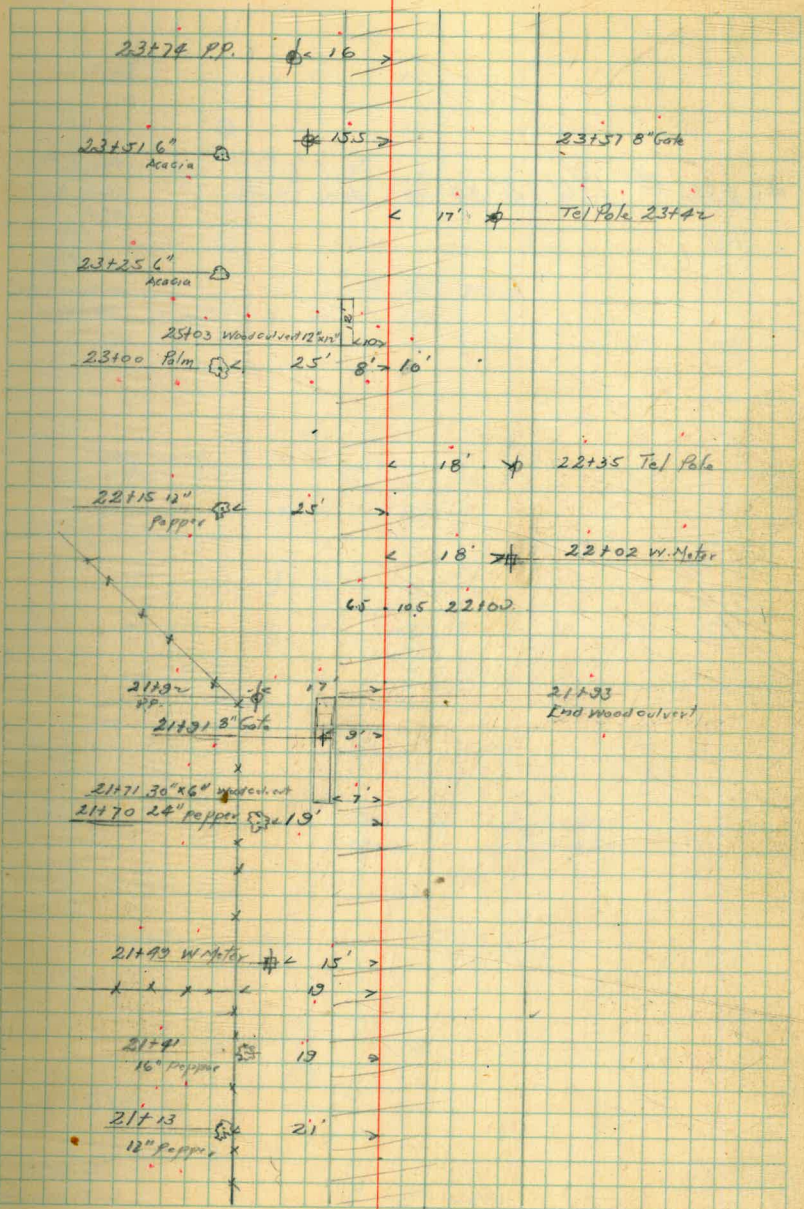 23+74 P.P. 16
15.5 23+57 8" Gate
23+51 6"
Acacia
17' Tel Pole 23+42
23+25 6"
Acacia
12'
25+03 Wood culvert 12"x12" 10
23+00 Palm 25' 8' 10'
18' 22+35 Tel Pole
22+15 12" 25'
Pepper
18' 22+02 W. Meter
6.5 10.5 22+00
21+92 17' 21+93
P.P. End Wood culvert
21+91 8" Gate 9'
21+71 30"x6" Wood culvert 7'
21+70 24" Pepper 19'
21+49 W Meter 15'
19
21+41 19
16" Pepper
21+13 21'
12" Pepper